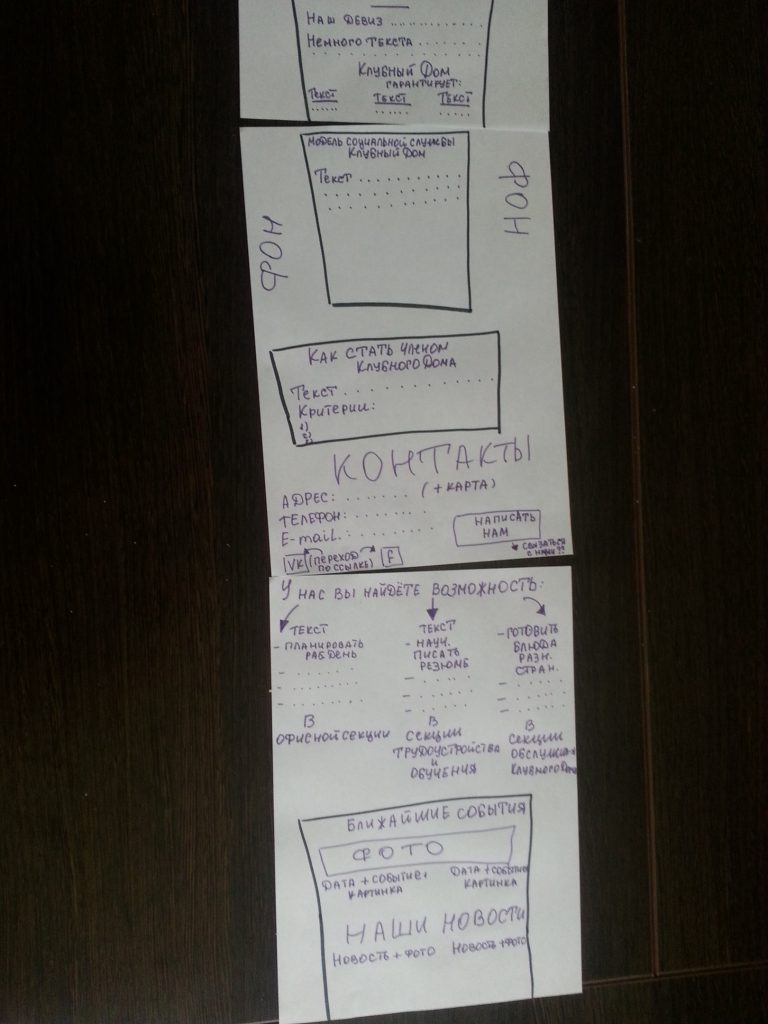 НАШ ДЕВИЗ ..................
НЕМНОГО ТЕКСТА ..........
КЛУБНЫЙ ДОМ
ГАРАНТИРУЕТ:
ТЕКСТ ТЕКСТ ТЕКСТ
МОДЕЛЬ СОЦИАЛЬНОЙ СЛУЖБЫ
КЛУБНЫЙ ДОМ
ТЕКСТ ............
ФОН
ФОН
КАК СТАТЬ ЧЛЕНОМ
КЛУБНОГО ДОМА
ТЕКСТ ................
КРИТЕРИИ:
1)
2)
3)
КОНТАКТЫ
АДРЕС: ....... (+ КАРТА)
ТЕЛЕФОН: .......
E-mail: .......
НАПИСАТЬ
НАМ
СВЯЗАТЬСЯ
С НАМИ??
VK (ПЕРЕХОД
ПО ССЫЛКЕ) F
У НАС ВЫ НАЙДЁТЕ ВОЗМОЖНОСТЬ:
ТЕКСТ
- ПЛАНИРОВАТЬ
РАБ ДЕНЬ
- .......
- .......
- .......
В
ОФИСНОЙ СЕКЦИИ
ТЕКСТ
- НАУЧ.
ПИСАТЬ
РЕЗЮМЕ
- .......
- .......
- .......
В
СЕКЦИИ
ТРУДОУСТРОЙСТВА
И
ОБУЧЕНИЯ
- ГОТОВИТЬ
БЛЮДА
РАЗН.
СТРАН.
- .......
- .......
- .......
В
СЕКЦИИ
КЛУБНОГО
БЛИЖАЙШИЕ СОБЫТИЯ
ФОТО
ДАТА + СОБЫТИЕ + ДАТА + СОБЫТИЕ
КАРТИНКА КАРТИНКА
НАШИ НОВОСТИ
НОВОСТЬ + ФОТО НОВОСТЬ + ФОТО